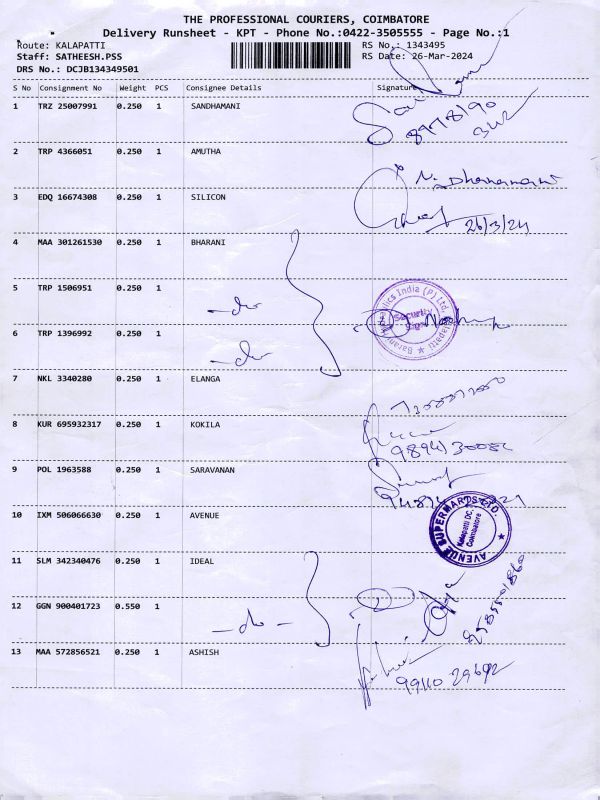 THE PROFESSIONAL COURIERS, COIMBATORE
Delivery Runsheet - KPT - Phone No.:0422-3505555 - Page No.:1
Route: KALAPATTI
RS No.: 1343495
Staff: SATHEESH.PSS
RS Date: 26-Mar-2024
DRS No.: DCJB134349501
S No Consignment No Weight PCS Consignee Details Signature
1 TRZ 25007991 0.250 1 SANDHAMANI
2 TRP 4366051 0.250 1 AMUTHA
3 EDQ 16674308 0.250 1 SILICON
26/3/24
4 MAA 301261530 0.250 1 BHARANI
5 TRP 1506951 0.250 1
-do
Security
6 TRP 1396992 0.250 1
-do
7 NKL 3340280 0.250 1 ELANGA
8 KUR 695932317 0.250 1 KOKILA
9 POL 1963588 0.250 1 SARAVANAN
10 IXM 506066630 0.250 1 AVENUE
AVENUE SUPERMARTS LTD.
Kalapatti DC,
Coimbatore
11 SLM 342340476 0.250 1 IDEAL
12 GGN 900401723 0.550 1
-do-
13 MAA 572856521 0.250 1 ASHISH